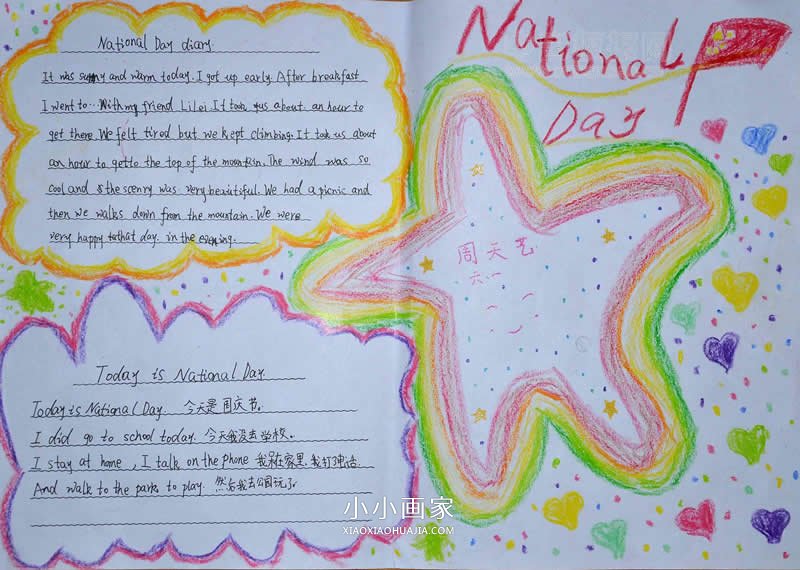 National Day diary.
It was sunny and warm today. I got up early. After breakfast
I went to... With my friend LiLei. It took us about an hour to
get there. We felt tired but we kept climbing. It took us about
an hour to getto the top of the mountain. The wind was so
cool and the scenry was very beautiful. We had a picnic and
then we walks down from the mountain. We were
very happy that day. in the evening.
Today is National Day
Today is National Day. 今天是周庆节。
I did go to school today. 今天我没去学校。
I stay at home, I talk on the phone 我呆在家里.我打了电话.
And walk to the park to play. 然后我去公园玩了
National
Day
周天艺
六一
小小画家
XIAOXIAOHUAJIA.COM